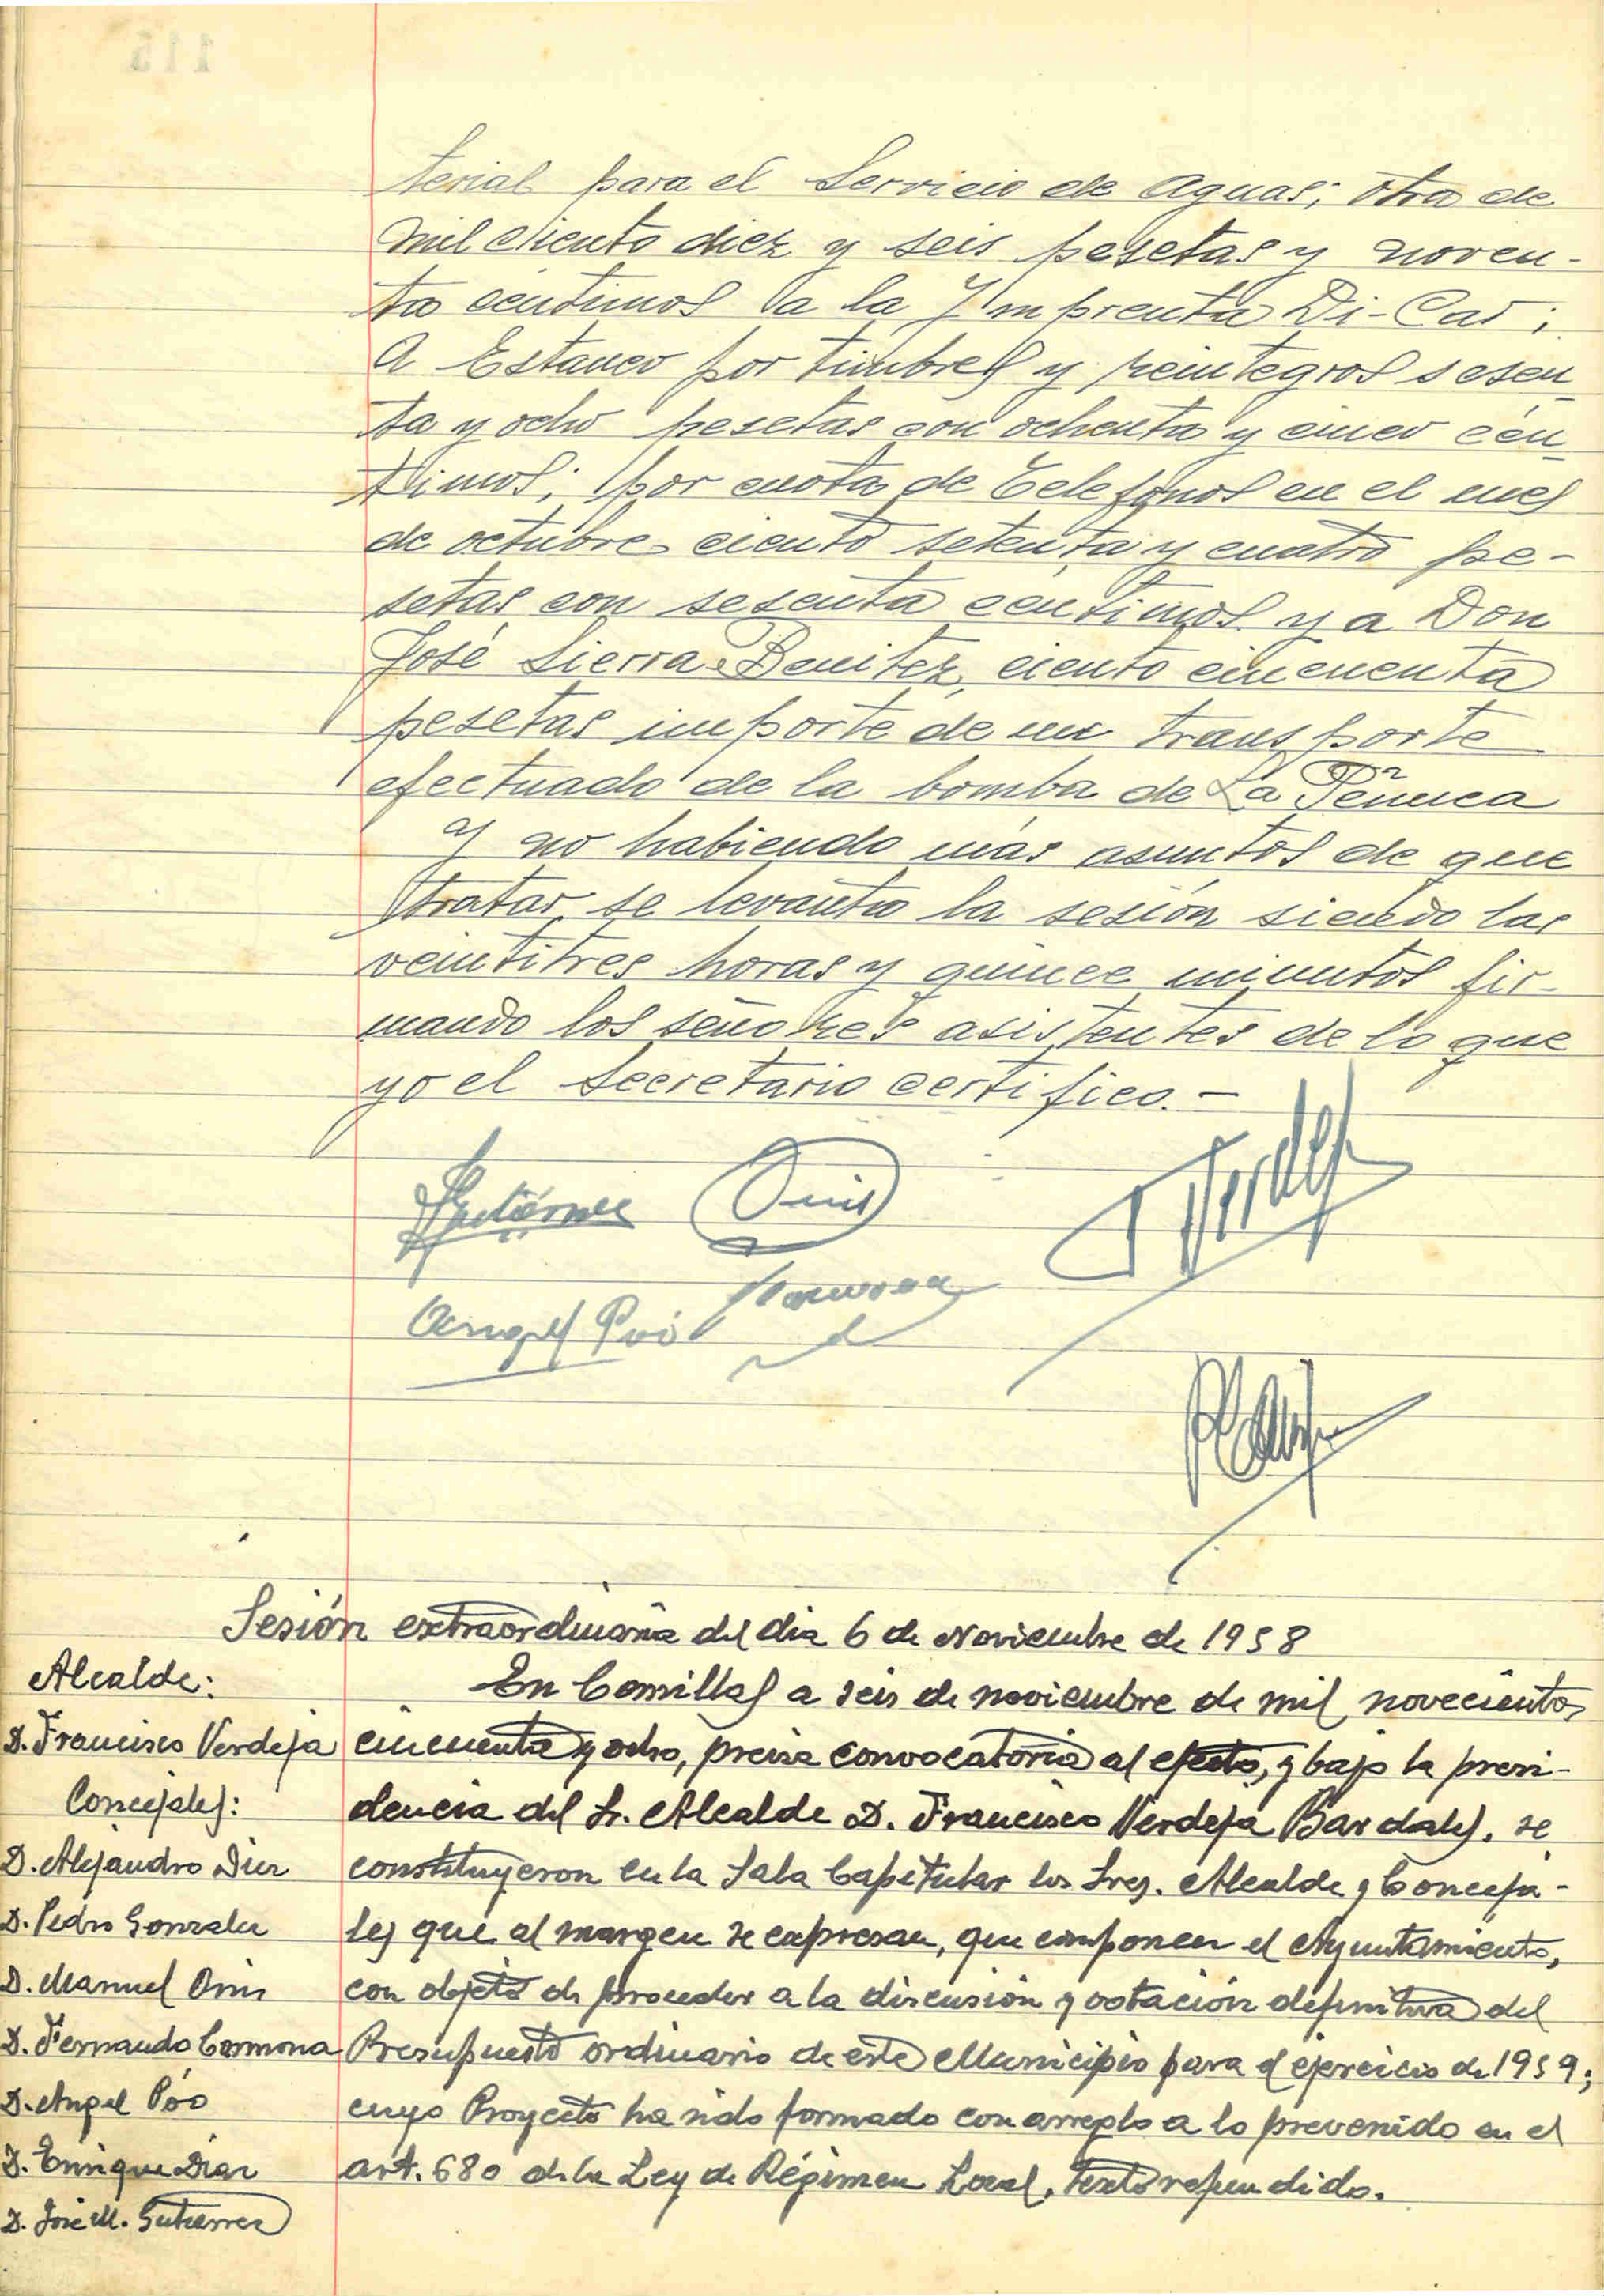 terial para el Servicio de Aguas; otra de
mil ciento diez y seis pesetas y noven-
ta céntimos a la Imprenta Di-Car;
A Estanco por timbres y reintegros sesen
ta y ocho pesetas con ochenta y cinco cén
timos; por cuota de Telefonos en el mes
de octubre ciento setenta y cuatro pe-
setas con sesenta centimos y a Don
José Sierra Benitez, ciento cincuenta
pesetas importe de un transporte
efectuado de la bomba de La Peñuca
Y no habiendo más asuntos de que
tratar se levanta la sesión siendo las
veintitres horas y quince minutos fir-
mando los señores asistentes de lo que
yo el Secretario certifico.-
Gutiérrez Onis Verdeja
Angel Poó Carmona
Sesión extraordinaria del dia 6 de Noviembre de 1958
Alcalde:
D. Francisco Verdeja
Concejales:
D. Alejandro Diez
D. Pedro Gonzalez
D. Manuel Onis
D. Fernando Carmona
D. Angel Póo
D. Enrique Diaz
D. José M. Gutierrez
En Comillas a seis de noviembre de mil novecientos
cincuenta y ocho, previa convocatoria al efecto, y bajo la presi-
dencia del Sr. Alcalde D. Francisco Verdeja Bardales, se
constituyeron en la Sala Capitular los Sres. Alcalde y Conceja-
les que al margen se expresan, que componen el Ayuntamiento,
con objeto de proceder a la discusión y votación definitiva del
Presupuesto ordinario de este Municipio para el ejercicio de 1959;
cuyo Proyecto ha sido formado con arreglo a lo prevenido en el
art. 680 de la Ley de Régimen Local, texto refundido.